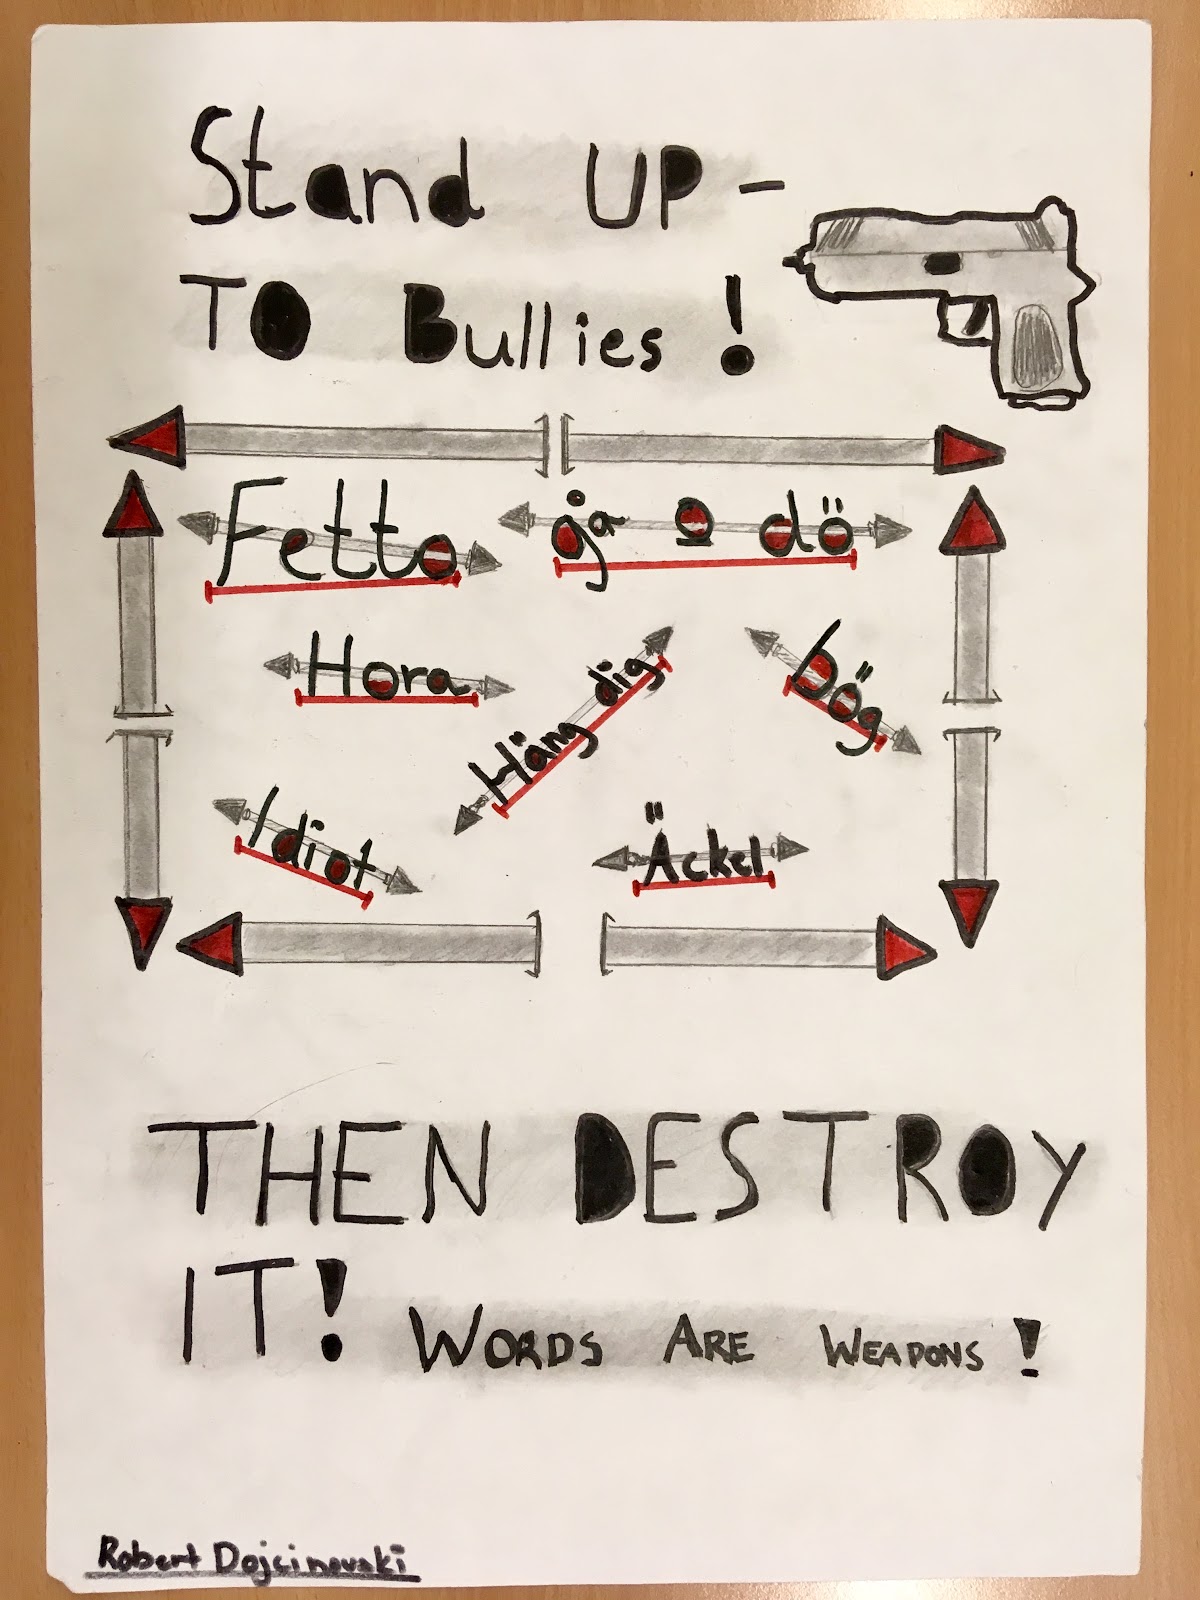 Stand UP -
TO Bullies !
Fetto
gå o dö
Hora
Häng dig
bög
Idiot
Äckel
THEN DESTROY
IT! WORDS ARE WEAPONS !
Robert Dojcinovski